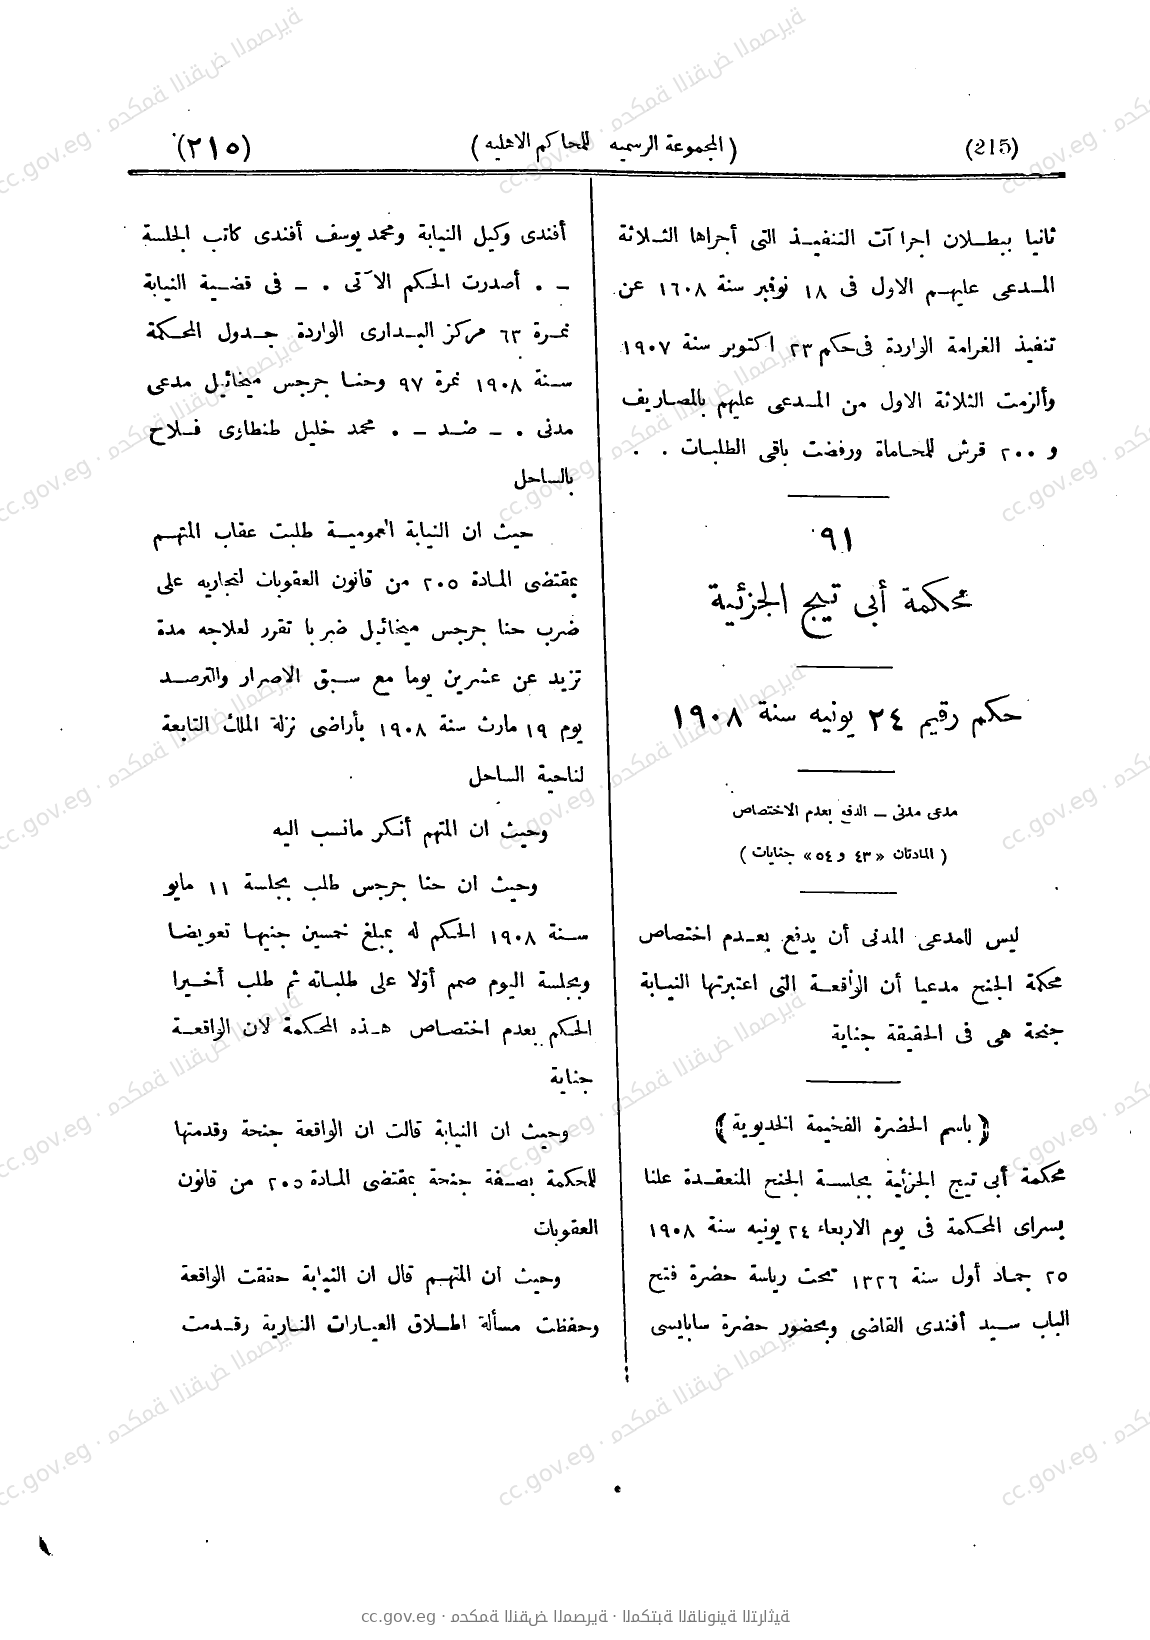 (215)
(المجموعة الرسميه للمحاكم الاهليه)
(٢١٥)
ثانيا ببطلان اجراآت التنفيذ التى أجراها الثلاثة
المدعى عليهم الاول فى ١٨ نوفمبر سنة ١٦٠٨ عن
تنفيذ الغرامة الواردة فى حكم ٢٣ اكتوبر سنة ١٩٠٧
وألزمت الثلاثة الاول من المدعى عليهم بالمصاريف
و ٢٠٠ قرش للمحاماة ورفضت باقى الطلبات . .
٩١
محكمة أبى تيج الجزئية
حكم رقيم ٢٤ يونيه سنة ١٩٠٨
مدعى مدنى ــ الدفع بعدم الاختصاص
(المادتان «٤٣ و ٥٤» جنايات)
ليس للمدعى المدنى أن يدفع بعدم اختصاص
محكمة الجنح مدعيا أن الواقعة التى اعتبرتها النيابة
جنحة هى فى الحقيقة جناية
(باسم الحضرة الفخيمة الخديوية)
محكمة أبى تيج الجزئية بجلسة الجنح المنعقدة علنا
بسراى المحكمة فى يوم الاربعاء ٢٤ يونيه سنة ١٩٠٨
٢٥ جماد أول سنة ١٣٢٦ تحت رياسة حضرة فتح
الباب سيد أفندى القاضى وبحضور حضرة سابايسى
أفندى وكيل النيابة ومحمد يوسف أفندى كاتب الجلسة
ــ . أصدرت الحكم الآتى . ــ فى قضية النيابة
نمرة ٦٣ مركز البدارى الواردة جدول المحكمة
سنة ١٩٠٨ نمرة ٩٧ وحنا جرجس ميخائيل مدعى
مدنى . ــ ضد ــ . محمد خليل طنطارى فلاح
بالساحل
حيث ان النيابة العمومية طلبت عقاب المتهم
بمقتضى المادة ٢٠٥ من قانون العقوبات لتجاريه على
ضرب حنا جرجس ميخائيل ضربا تقرر لعلاجه مدة
تزيد عن عشرين يوما مع سبق الاصرار والترصد
يوم ١٩ مارث سنة ١٩٠٨ بأراضى نزلة الملك التابعة
لناحية الساحل
وحيث ان المتهم أنكر مانسب اليه
وحيث ان حنا جرجس طلب بجلسة ١١ مايو
سنة ١٩٠٨ الحكم له بمبلغ خمسين جنيها تعويضا
وبجلسة اليوم صمم أوّلا على طلباته ثم طلب أخيرا
الحكم بعدم اختصاص هذه المحكمة لان الواقعة
جناية
وحيث ان النيابة قالت ان الواقعة جنحة وقدمتها
للمحكمة بصفة جنحة بمقتضى المادة ٢٠٥ من قانون
العقوبات
وحيث ان المتهم قال ان النيابة حققت الواقعة
وحفظت مسألة اطلاق العيارات النارية وقدمت
cc.gov.eg · محكمة النقض المصرية · المكتبة القانونية التراثية